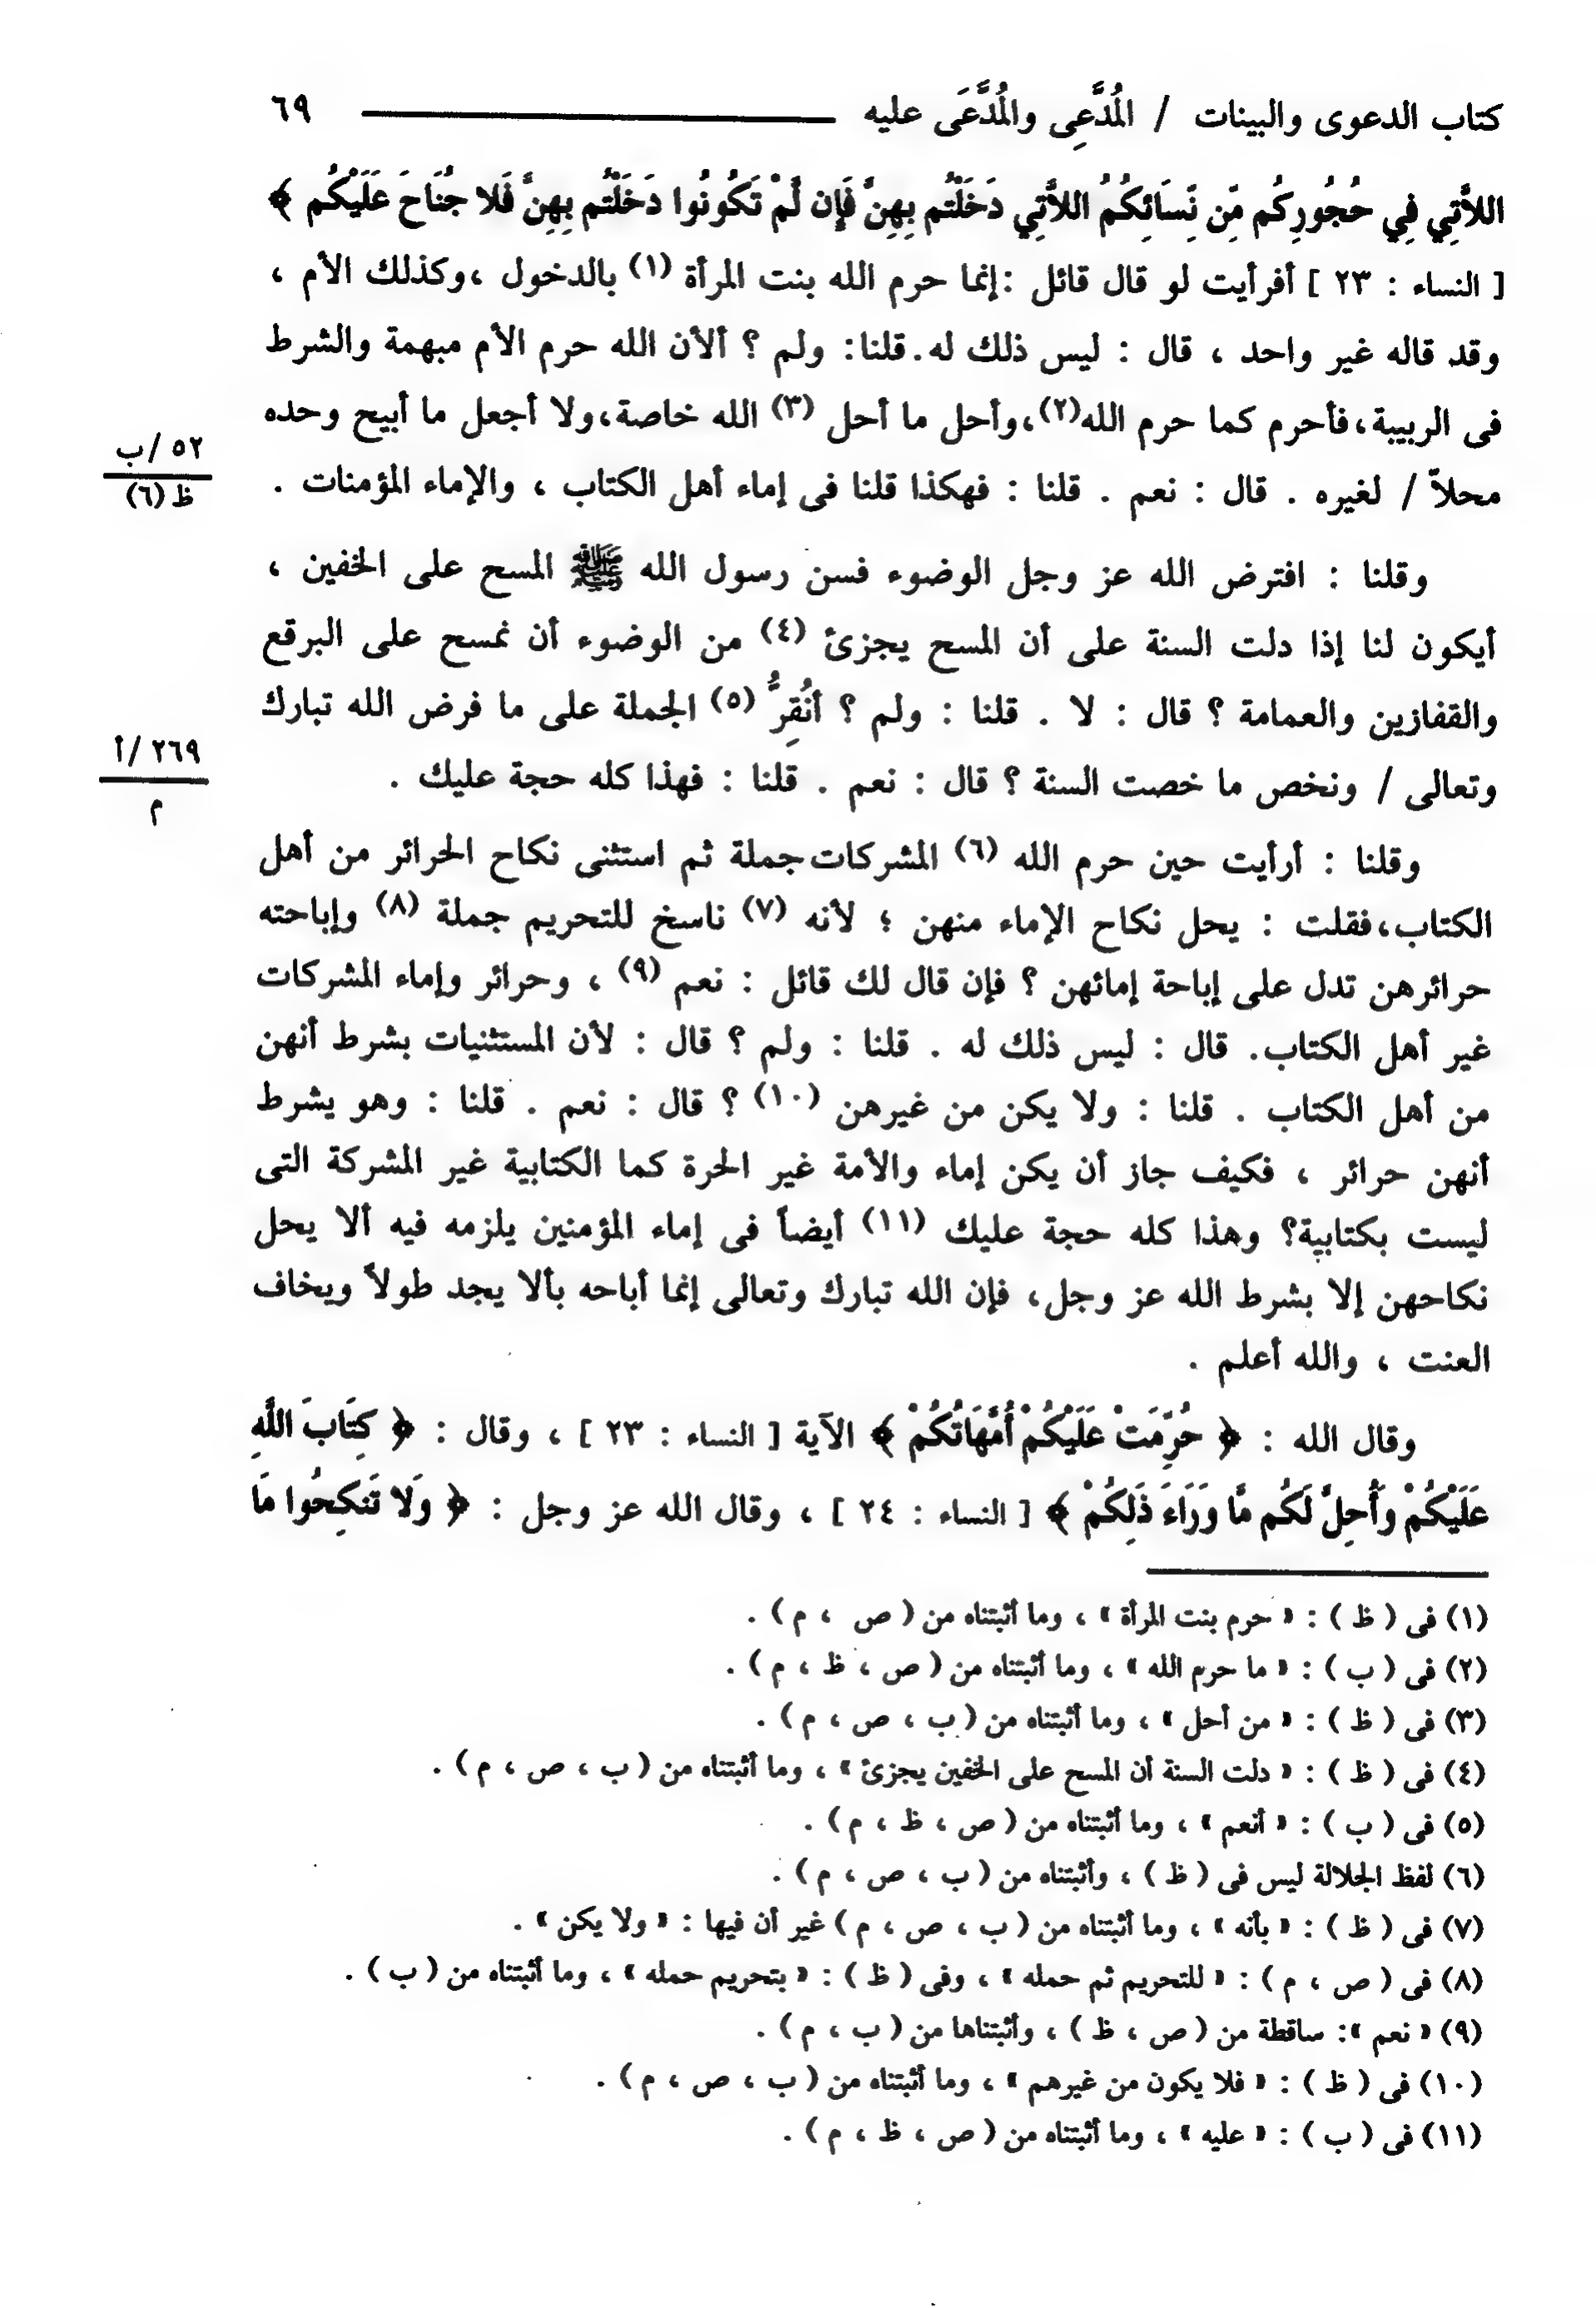 كتاب الدعوى والبينات / المُدَّعِى والمُدَّعَى عليه ٦٩
اللاَّتِي فِي حُجُورِكُم مِّن نِّسَائِكُمُ اللاَّتِي دَخَلْتُم بِهِنَّ فَإِن لَّمْ تَكُونُوا دَخَلْتُم بِهِنَّ فَلا جُنَاحَ عَلَيْكُم ﴾
[ النساء : ٢٣ ] أفرأيت لو قال قائل :إنما حرم الله بنت المرأة (١) بالدخول ،وكذلك الأم ،
وقد قاله غير واحد ، قال : ليس ذلك له .قلنا: ولم ؟ ألأن الله حرم الأم مبهمة والشرط
فى الربيبة،فأحرم كما حرم الله(٢)،وأحل ما أحل (٣) الله خاصة،ولا أجعل ما أبيح وحده
محلاً / لغيره . قال : نعم . قلنا : فهكذا قلنا فى إماء أهل الكتاب ، والإماء المؤمنات .
٥٢ /ب
ظ (٦)
وقلنا : افترض الله عز وجل الوضوء فسن رسول الله ﷺ المسح على الخفين ،
أيكون لنا إذا دلت السنة على أن المسح يجزئ (٤) من الوضوء أن نمسح على البرقع
والقفازين والعمامة ؟ قال : لا . قلنا : ولم ؟ أنُقِرُّ (٥) الجملة على ما فرض الله تبارك
وتعالى / ونخص ما خصت السنة ؟ قال : نعم . قلنا : فهذا كله حجة عليك .
٢٦٩ /أ
م
وقلنا : أرأيت حين حرم الله (٦) المشركات جملة ثم استثنى نكاح الحرائر من أهل
الكتاب،فقلت : يحل نكاح الإماء منهن ؛ لأنه (٧) ناسخ للتحريم جملة (٨) وإباحته
حرائرهن تدل على إباحة إمائهن ؟ فإن قال لك قائل : نعم (٩) ، وحرائر وإماء المشركات
غير أهل الكتاب. قال : ليس ذلك له . قلنا : ولم ؟ قال : لأن المستثنيات بشرط أنهن
من أهل الكتاب . قلنا : ولا يكن من غيرهن (١٠) ؟ قال : نعم . قلنا : وهو يشرط
أنهن حرائر ، فكيف جاز أن يكن إماء والأمة غير الحرة كما الكتابية غير المشركة التى
ليست بكتابية؟ وهذا كله حجة عليك (١١) أيضاً فى إماء المؤمنين يلزمه فيه ألا يحل
نكاحهن إلا بشرط الله عز وجل، فإن الله تبارك وتعالى إنما أباحه بألا يجد طولاً ويخاف
العنت ، والله أعلم .
وقال الله : ﴿ حُرِّمَتْ عَلَيْكُمْ أُمَّهَاتُكُمْ ﴾ الآية [ النساء : ٢٣ ] ، وقال : ﴿ كِتَابَ اللَّهِ
عَلَيْكُمْ وَأُحِلَّ لَكُم مَّا وَرَاءَ ذَلِكُمْ ﴾ [ النساء : ٢٤ ] ، وقال الله عز وجل : ﴿ وَلَا تَنكِحُوا مَا
(١) فى ( ظ ) : « حرم بنت المرأة » ، وما أثبتناه من ( ص ، م ) .
(٢) فى ( ب ) : « ما حرم الله » ، وما أثبتناه من ( ص ، ظ ، م ) .
(٣) فى ( ظ ) : « من أحل » ، وما أثبتناه من ( ب ، ص ، م ) .
(٤) فى ( ظ ) : « دلت السنة أن المسح على الخفين يجزئ » ، وما أثبتناه من ( ب ، ص ، م ) .
(٥) فى ( ب ) : « أنعم » ، وما أثبتناه من ( ص ، ظ ، م ) .
(٦) لفظ الجلالة ليس فى ( ظ ) ، وأثبتناه من ( ب ، ص ، م ) .
(٧) فى ( ظ ) : « بأنه » ، وما أثبتناه من ( ب ، ص ، م ) غير أن فيها : « ولا يكن » .
(٨) فى ( ص ، م ) : « للتحريم ثم حمله » ، وفى ( ظ ) : « بتحريم حمله » ، وما أثبتناه من ( ب ) .
(٩) « نعم »: ساقطة من ( ص ، ظ ) ، وأثبتناها من ( ب ، م ) .
(١٠) فى ( ظ ) : « فلا يكون من غيرهم » ، وما أثبتناه من ( ب ، ص ، م ) .
(١١) فى ( ب ) : « عليه » ، وما أثبتناه من ( ص ، ظ ، م ) .